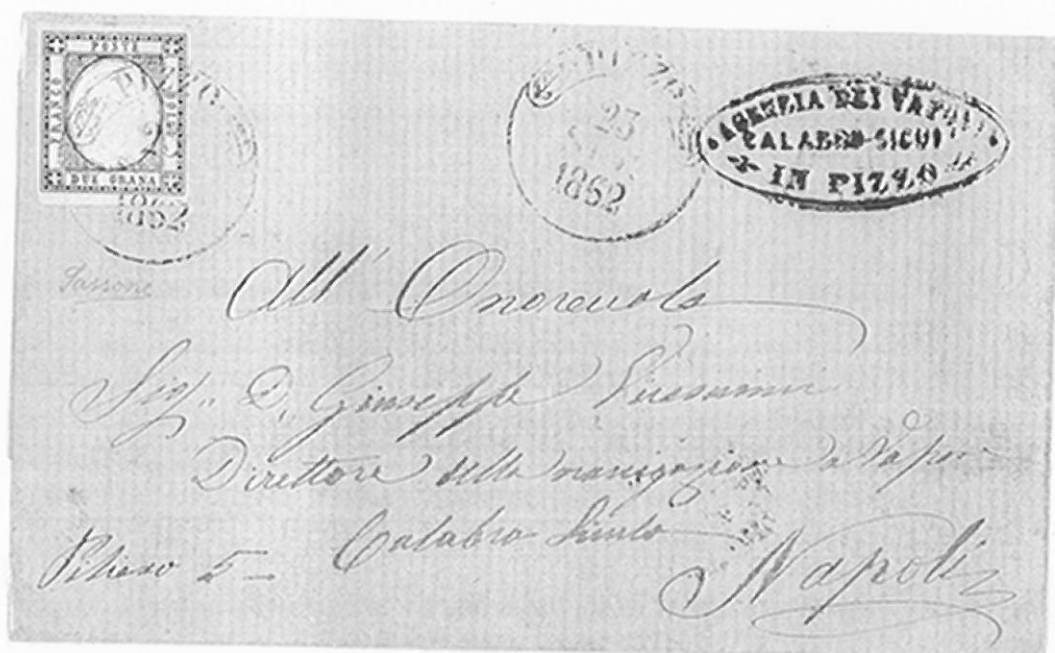 POSTE
FRANCO
BOLLO
DUE GRANA
1862
23
1862
AGENZIA DEI VAPORI
CALABRO-SICULI
IN PIZZO
All' Onorevole
Sig.. D. Giuseppe
Direttore della navigazione a Vapore
Calabro Siculo
Napoli